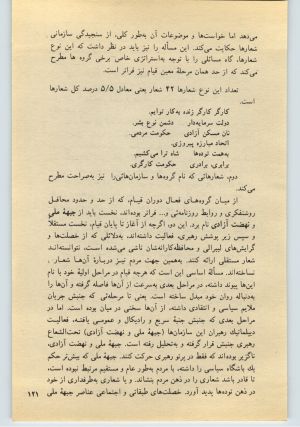 می‌دهد اما خواست‌ها و موضوعات آن به‌طور کلی، از سنجیدگی سازمانی
شعارها حکایت می‌کند. این مسأله را نیز باید در نظر داشت که این نوع
شعارها، گاه مسائلی را با توجه به‌استراتژی خاص برخی گروه ها مطرح
می‌کند که از حد همان مرحلهٔ معین قیام نیز فراتر است.
تعداد این نوع شعارها ۴۲ شعار یعنی معادل ۵/۵ درصد کل شعارها
است.
کارگر کارگر زنده به‌کار توایم.
دولت سرمایه‌دار دشمن نوع بشر.
نان مسکن آزادی حکومت مردمی.
اتحاد مبارزه پیروزی.
به‌همت توده‌ها شاه ترا می‌کشیم.
برابری، برادری حکومت کارگری.
دوم، شعارهائی که نام گروه‌ها و سازمان‌هائی را نیز به‌صراحت مطرح
می‌کند.
از میان گروه‌های فعال دوران قیام، که از حد و حدود محافل
روشنفکری و روابط روزنامه‌ئی و... فراتر بوده‌اند، نخست باید از جبههٔ ملی
و نهضت آزادی نام برد. این دو، اگرچه از آغاز تا پایان قیام، نخست مستقلاً
و سپس زیر پوشش رهبری، فعالیت داشته‌اند، به‌دلائلی که از خصلت‌ها و
گرایش‌های لیبرالی و محافظه‌کارانه‌شان ناشی می‌شده است، نتوانسته‌اند
شعار مستقلی ارائه کنند. به‌همین جهت مردم نیز دربارهٔ آن‌ها شعار
نساخته‌اند. مسألهٔ اساسی این است که هرچه قیام در مراحل اولیهٔ خود با نام
این‌ها پیوند داشته، در مراحل بعدی به‌سرعت از آن‌ها فاصله گرفته و آن‌ها را
به‌دنباله روان خود مبدل ساخته است. یعنی تا مرحله‌ئی که جنبش جریان
ملایم سیاسی و انتقادی داشته، از آن‌ها سخنی در میان بوده است. اما در
مراحل بعدی که جنبش جنبهٔ سریع و رادیکال و عمومی یافته، فعالیت
دیپلماتیك رهبران این سازمان‌ها (جبههٔ ملی و نهضت آزادی) تحت‌الشعاع
رهبری جنبش قرار گرفته و به‌تحلیل رفته است. جبههٔ ملی و نهضت آزادی،
ناگزیر بوده‌اند که فقط در پرتو رهبری حرکت کنند. جبههٔ ملی که بیش‌تر حکم
یك باشگاه سیاسی را داشته، با مردم به‌طور عام و مستقیم مرتبط نبوده است،
تا قادر باشد شعاری را در ذهن مردم بنشاند. و یا شعاری به‌طرفداری از خود
در ذهن توده‌ها پدید آورد. خصلت‌های طبقاتی و اجتماعی عناصر جبههٔ ملی
۱۲۱